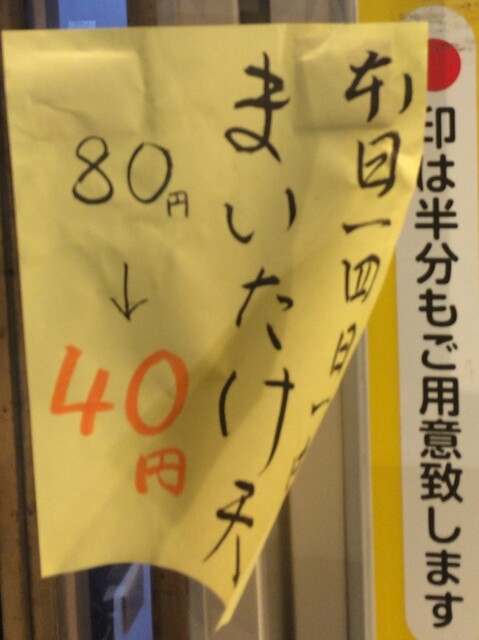 印は半分もご用意致します
本日一四日
まいたけ天
80円
↓
40円